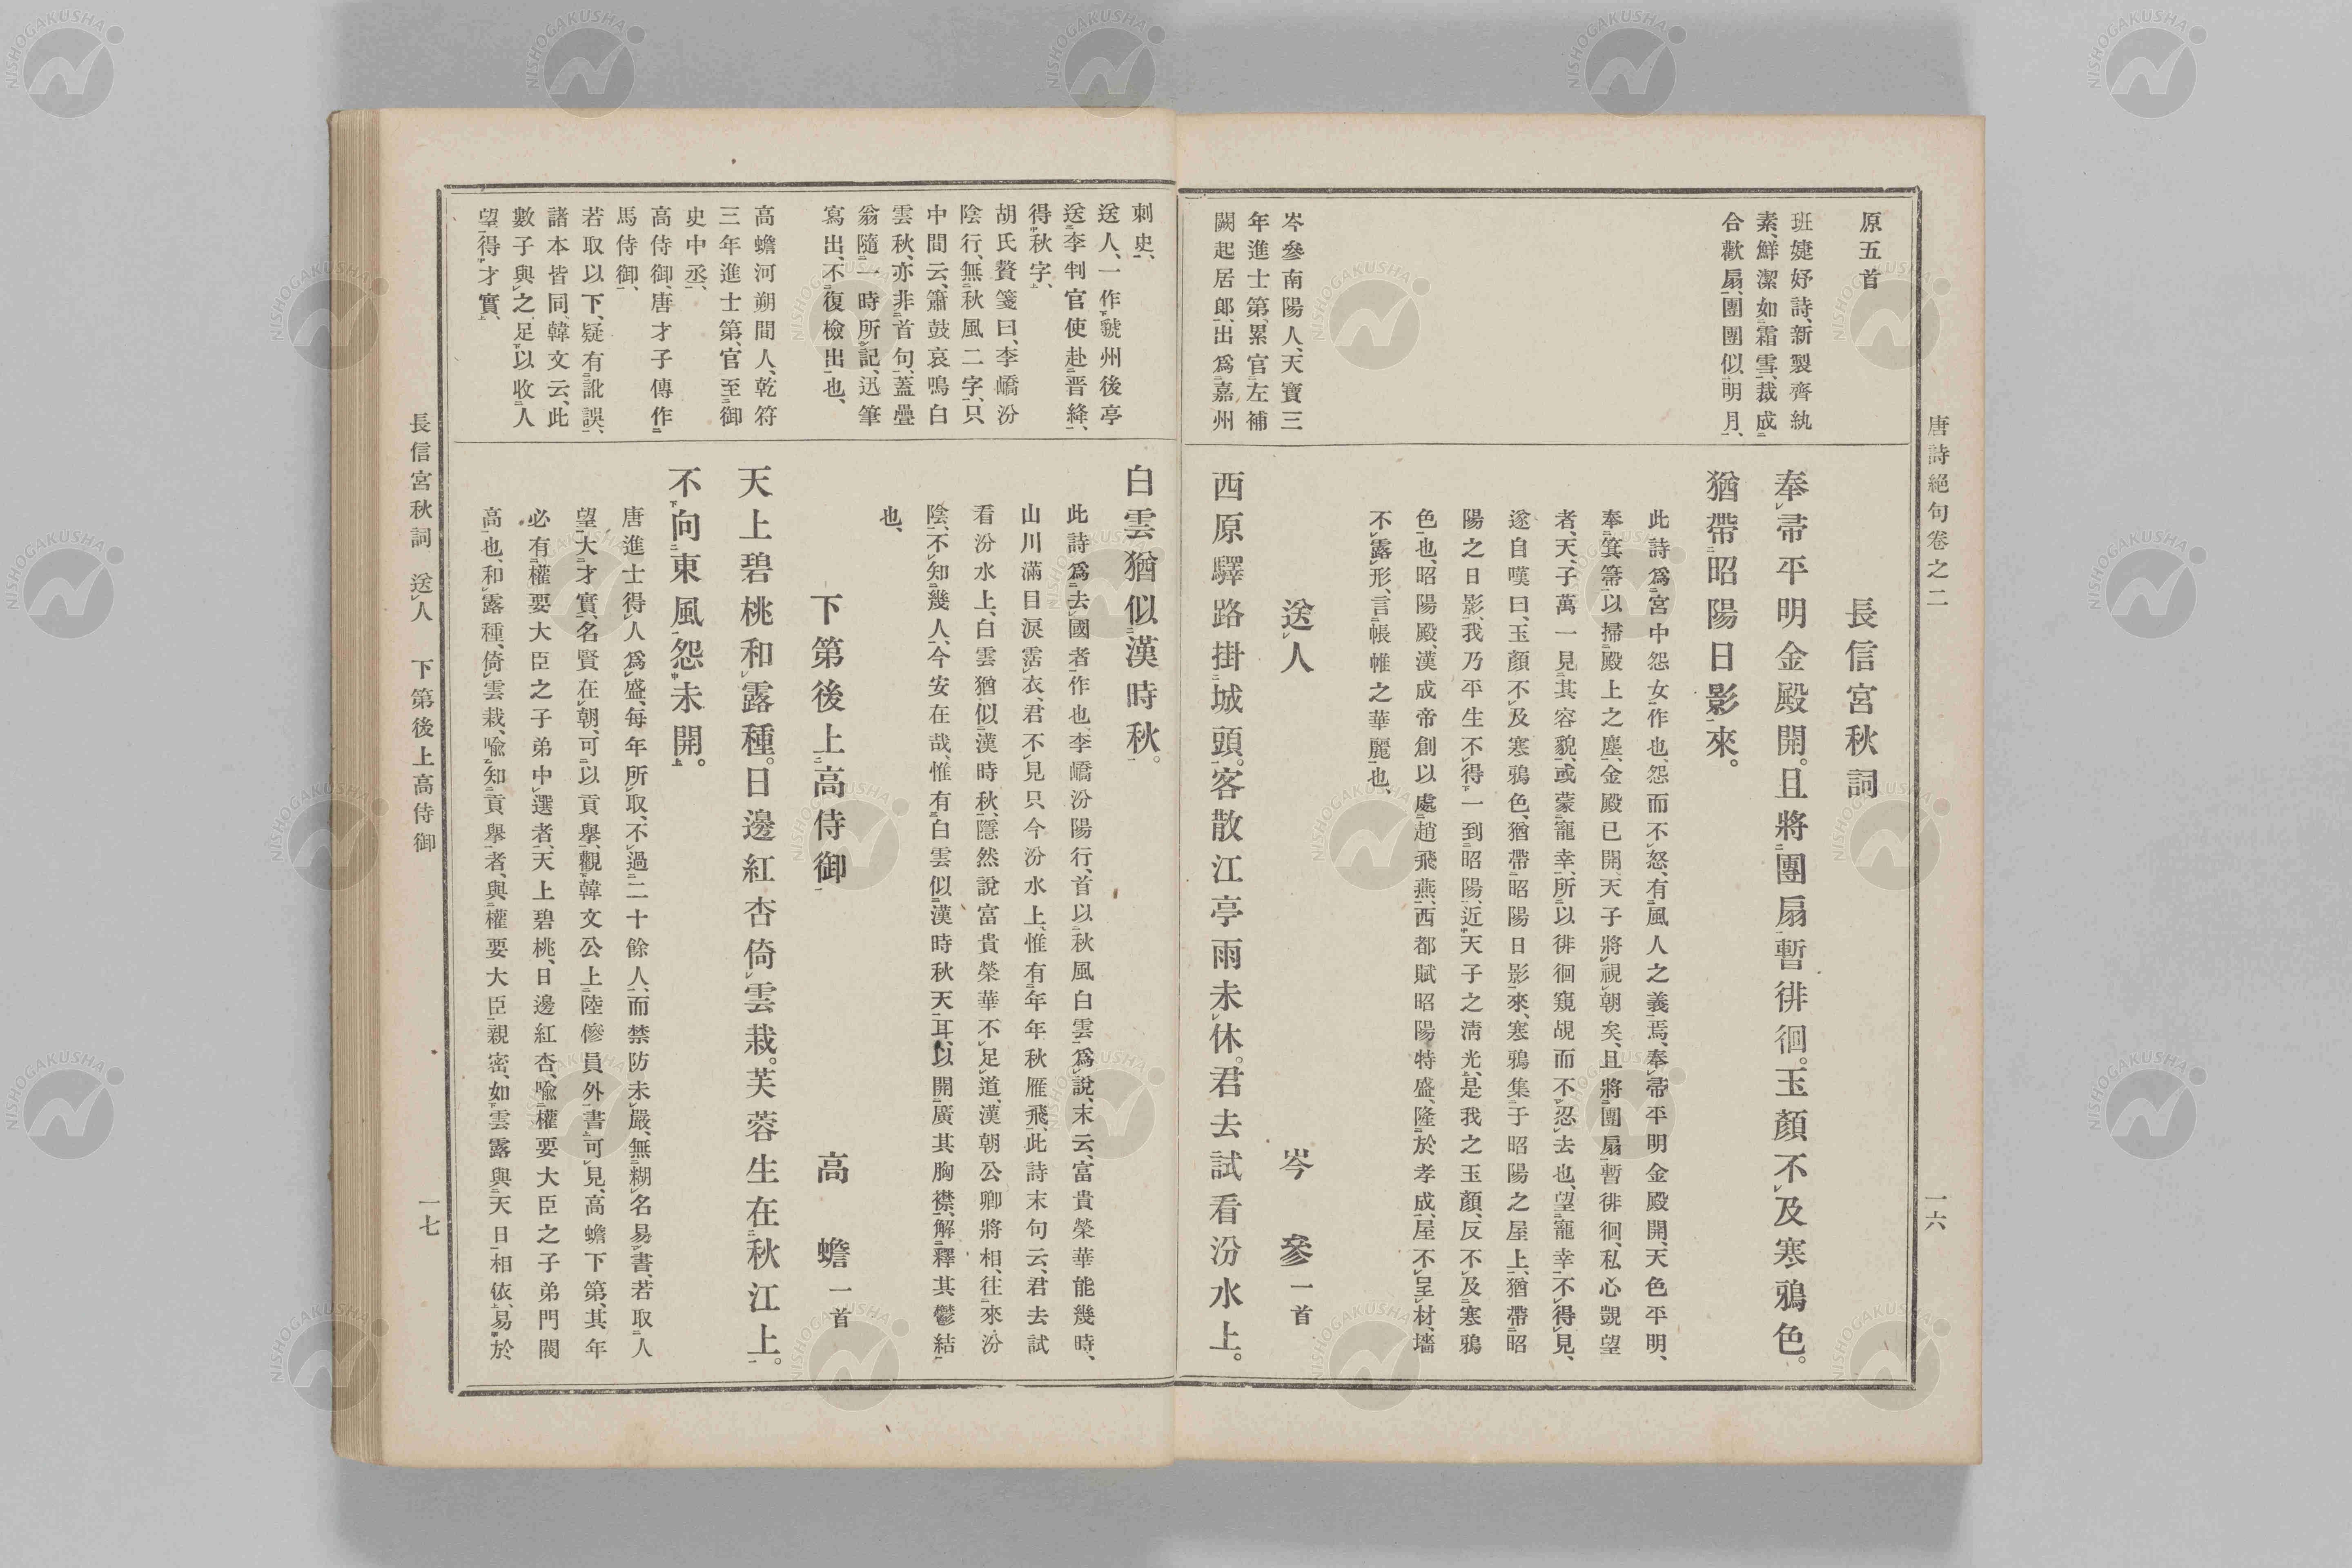 唐詩絕句卷之二
一六
原五首
班婕妤詩、新製齊紈
素、鮮潔如霜雪、裁成
合歡扇、團團似明月、
岑參南陽人、天寶三
年進士第、累官左補
闕起居郎、出爲嘉州
長信宮秋詞
奉帚平明金殿開。且將團扇暫徘徊。玉顏不及寒鴉色。
猶帶昭陽日影來。
此詩爲宮中怨女作也、怨而不怒、有風人之義焉、奉帚平明金殿開、天色平明、
奉箕箒以掃殿上之塵、金殿已開、天子將視朝矣、且將團扇暫徘徊、私心覬望
者、天子萬一見其容貌、或蒙寵幸、所以徘徊窺覘而不忍去也、望寵幸不得見、
遂自嘆曰、玉顏不及寒鴉色、猶帶昭陽日影來、寒鴉集于昭陽之屋上、猶帶昭
陽之日影、我乃平生不得一到昭陽、近天子之淸光、是我之玉顏、反不及寒鴉
色也、昭陽殿、漢成帝創以處趙飛燕、西都賦昭陽特盛、隆於孝成、屋不呈材、墻
不露形、言帳帷之華麗也、
送人　岑參一首
西原驛路掛城頭。客散江亭雨未休。君去試看汾水上。
刺史、
送人、一作虢州後亭
送李判官使赴晋絳、
得秋字、
胡氏贅箋曰、李嶠汾
陰行、無秋風二字、只
中間云、簫鼓哀鳴白
雲秋、亦非首句、蓋疊
翁隨一時所記、迅筆
寫出、不復檢出也、
高蟾河朔間人、乾符
三年進士第、官至御
史中丞、
高侍御、唐才子傳作
馬侍御、
若取以下、疑有訛誤、
諸本皆同、韓文云、此
數子與之、足以收人
望得才實、
白雲猶似漢時秋。
此詩爲去國者作也、李嶠汾陽行、首以秋風白雲爲說、末云、富貴榮華能幾時、
山川滿目淚霑衣、君不見只今汾水上、惟有年年秋雁飛、此詩末句云、君去試
看汾水上、白雲猶似漢時秋、隱然說富貴榮華不足道、漢朝公卿將相、往來汾
陰、不知幾人、今安在哉、惟有白雲似漢時秋天耳、以開廣其胸襟、解釋其鬱結
也、
下第後上高侍御　高蟾一首
天上碧桃和露種。日邊紅杏倚雲栽。芙蓉生在秋江上。
不向東風怨未開。
唐進士得人爲盛、每年所取、不過二十餘人、而禁防未嚴、無糊名易書、若取人
望大才實、名賢在朝、可以貢舉、觀韓文公上陸傪員外書可見、高蟾下第、其年
必有權要大臣之子弟中選者、天上碧桃、日邊紅杏、喩權要大臣之子弟門閥
高也、和露種、倚雲栽、喩知貢舉者、與權要大臣親密、如雲露與天日相依、易於
長信宮秋詞　送人　下第後上高侍御
一七